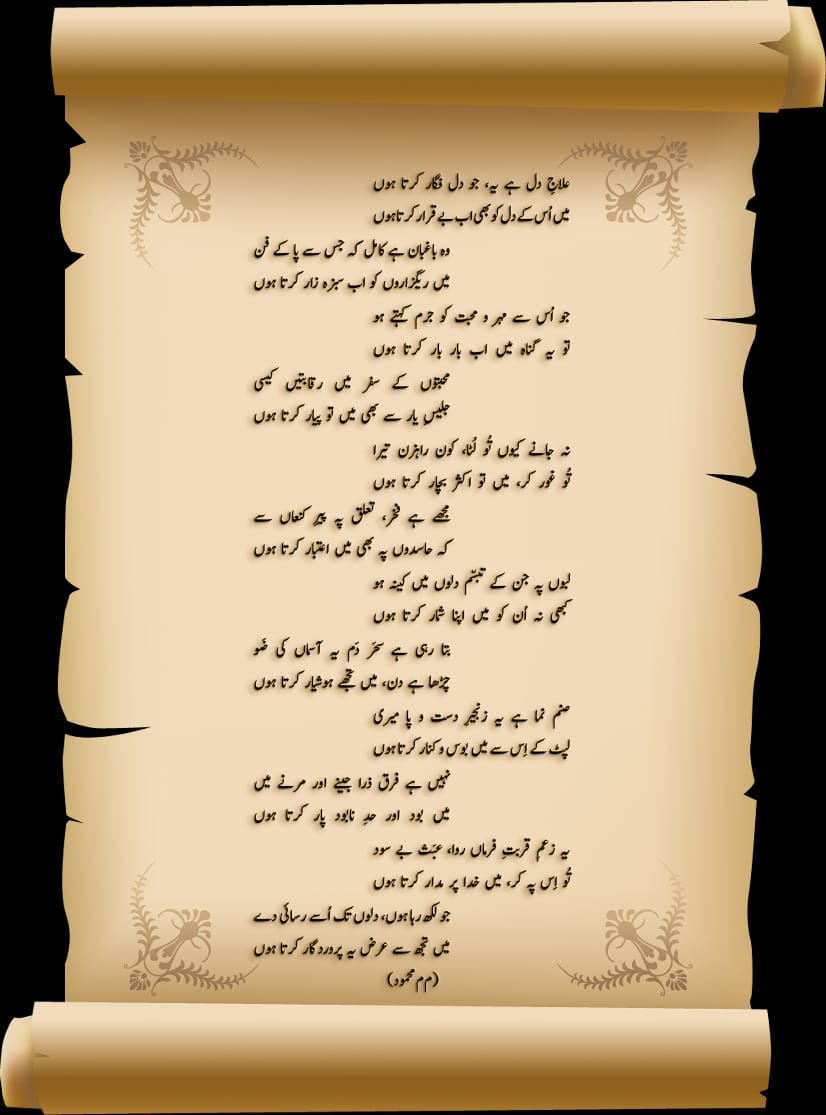 علاجِ دل ہے یہ، جو دل فگار کرتا ہوں
میں اُس کے دل کو بھی اب بے قرار کرتا ہوں
وہ باغبان ہے کامل کہ جس سے پا کے فن
میں ریگزاروں کو اب سبزہ زار کرتا ہوں
جو اُس سے مہر و محبت کو جرم کہتے ہو
تو یہ گناہ میں اب بار بار کرتا ہوں
محبتوں کے سفر میں رقابتیں کیسی
جلیسِ یار سے بھی میں تو پیار کرتا ہوں
نہ جانے کیوں تُو لُٹا، کون راہزن تیرا
تُو غور کر، میں تو اکثر بچار کرتا ہوں
مجھے ہے فخر، تعلق پہ پیرِ کنعاں سے
کہ حاسدوں پہ بھی میں اعتبار کرتا ہوں
لبوں پہ جن کے تبسّم دلوں میں کینہ ہو
کبھی نہ اُن کو میں اپنا شمار کرتا ہوں
بتا رہی ہے سحَر دَم یہ آسماں کی ضَو
چڑھا ہے دن، میں تجھے ہوشیار کرتا ہوں
صنم نما ہے یہ زنجیرِ دست و پا میری
لپٹ کے اِس سے میں بوس و کنار کرتا ہوں
نہیں ہے فرق ذرا جینے اور مرنے میں
میں بود اور حدِ نابود پار کرتا ہوں
یہ زعمِ قربتِ فرماں روا، عبَث بے سود
تُو اِس پہ کر، میں خدا پر مدار کرتا ہوں
جو لکھ رہا ہوں، دلوں تک اُسے رسائی دے
میں تجھ سے عرض یہ پروردگار کرتا ہوں
(م م محمود)